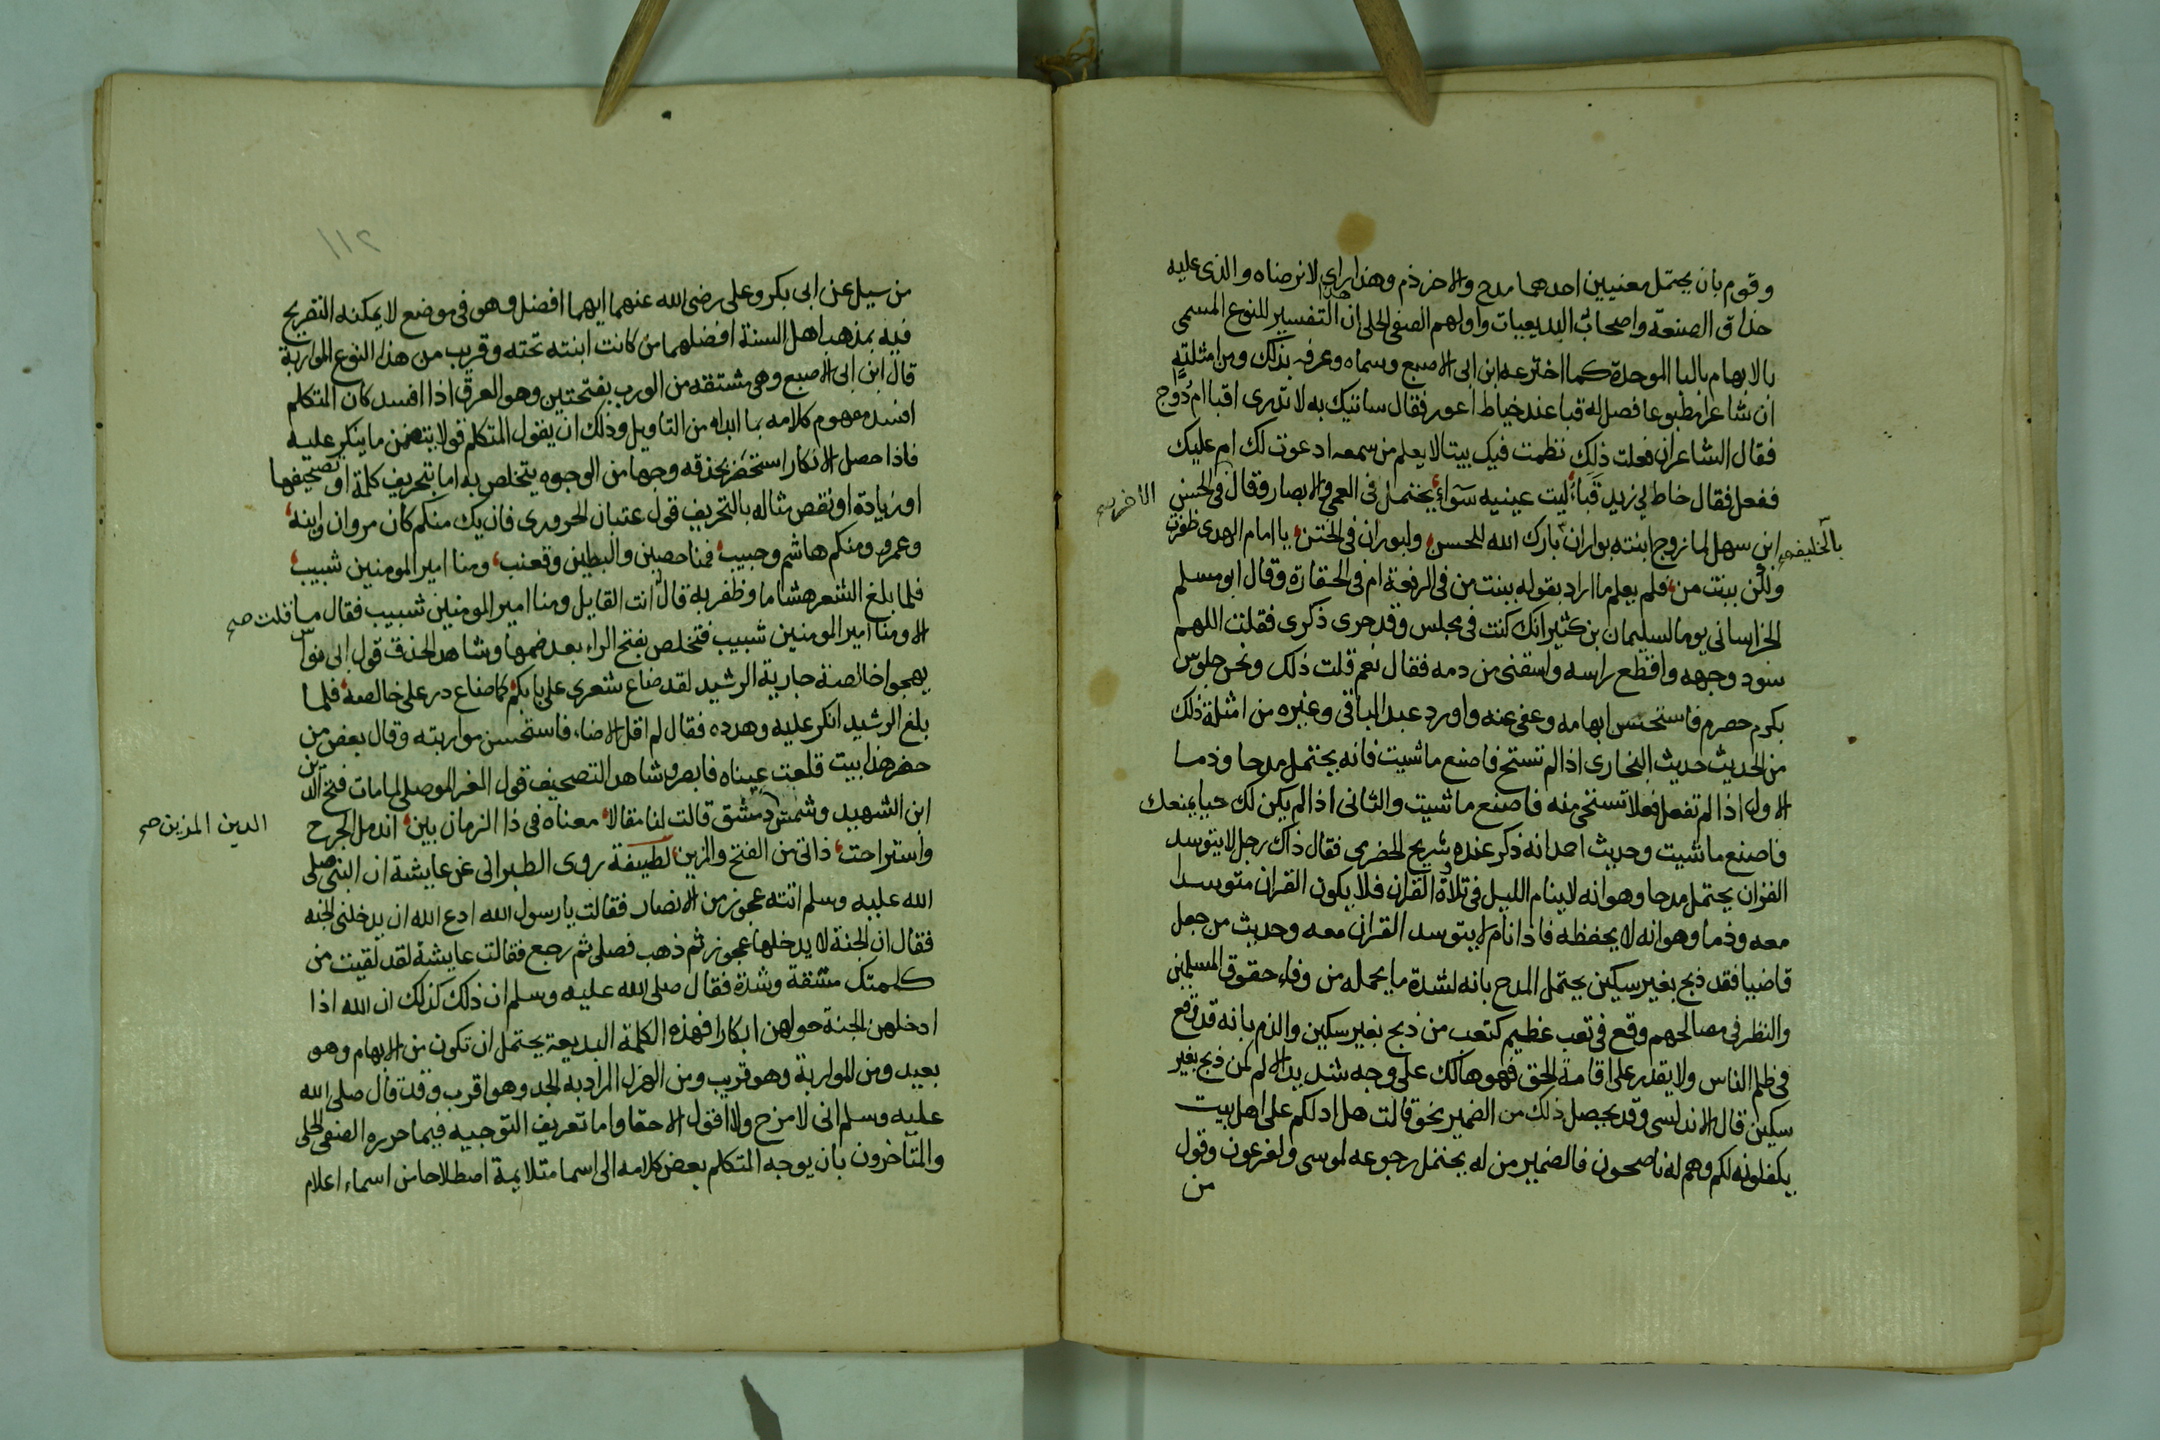 وقوم بان يحتمل معنيين احدهما مدح والاخر ذم وهذا راي لا نرضاه والذى عليه
حذاق الصنعة واصحاب البديعيات واولهم الصفى الحلى ان هذا التفسير للنوع المسمى
بالابهام بالبا الموحدة كما اخترعه ابن ابى الاصبع وسماه وعرفه بذلك ومن امثلته
ان شاعرا مطبوعا فصل له قبا عند خياط اعور فقال ساتيك به لا تدرى اقبا ام دوج
فقال الشاعر ان فعلت ذلك نظمت فيك بيتا لا يعلم من سمعه ادعوت لك ام عليك
ففعل فقال خاط لى زيد قباء ليت عينيه سواء يحتمل فى العمى والابصار وقال فى الحسن
الاخر صح
ابن سهل لما زوج ابنته بوران بارك الله للحسن ولبوران فى الختن يا امام الهدى ظفرت
بالخليفة صح
ولكن ببنت من فلم يعلم ما اراد بقوله ببنت من فى الرفعة ام فى الحقارة وقال ابو مسلم
الخراسانى يوما لسليمان بن كثير انك كنت فى مجلس وقد جرى ذكرى فقلت اللهم
سود وجهه واقطع راسه واسقنى من دمه فقال نعم قلت ذلك ونحن جلوس
بكرم حصرم فاستحسن ابهامه وعفى عنه واورد عبد الباقى وغيره من امثلة ذلك
من الحديث حديث البخارى اذا لم تستح فاصنع ما شيت فانه يحتمل مدحا وذما
الاول اذا لم تفعل فعلا تستحى منه فاصنع ما شيت والثانى اذا لم يكن لك حيا يمنعك
فاصنع ما شيت وحديث احد انه ذكر عنده شريح الحضرمى فقال ذاك رجل لا يتوسد
القران يحتمل مدحا وهو انه لا ينام الليل فى تلاوة القران فلا يكون القران متوسدا
معه وذما وهو انه لا يحفظه فاذا نام لا يتوسد القران معه وحديث من جعل
قاضيا فقد ذبح بغير سكين يحتمل المدح بانه لشدة ما يحمله من وفاء حقوق المسلمين
والنظر فى مصالحهم وقع فى تعب عظيم كتعب من ذبح بغير سكين والذم بانه قد وقع
فى ظلم الناس ولا يقدر على اقامة الحق فهو هالك على وجه شديد الالم لمن ذبح بغير
سكين قال الاندلسى وقد يحصل ذلك من الضمير نحو قالت هل ادلكم على اهل بيت
يكفلونه لكم وهم له ناصحون فالضمير من له يحتمل رجوعه لموسى ولفرعون وقول
من
٢١١
من سيل عن ابى بكر وعلى رضى الله عنهما ايهما افضل وهو فى موضع لا يمكنه التصريح
فيه بمذهب اهل السنة افضلهما من كانت ابنته تحته وقريب من هذا النوع المواربة
قال ابن ابى الاصبع وهى مشتقه من الورب بفتحتين وهو العرق اذا افسد كان المتكلم
افسد مفهوم كلامه بما ابداه من التاويل وذلك ان يقول المتكلم قولا يتضمن ما ينكر عليه
فاذا حصل الانكار استحضر بحذقه وجها من الوجوه يتخلص به اما بتحريف كلمة او تصحيفها
او زيادة او نقص مثاله بالتحريف قول عتبان الحرورى فان يك منكم كان مروان وابنه
وعمرو ومنكم هاشم وحبيب فمنا حصين والبطين وقعنب ومنا امير المومنين شبيب
فلما بلغ الشعر هشاما وظفر به قال انت القايل ومنا امير المومنين شبيب فقال ما قلت صح
الا ومنا امير المومنين شبيب فتخلص بفتح الراء بعد ضمها وشاهد الحذف قول ابى نواس
يهجوا خالصة جارية الرشيد لقد ضاع شعرى على بابكم كما ضاع در على خالصة فلما
بلغ الرشيد انكر عليه وهدده فقال لم اقل الا ضاء فاستحسن مواربته وقال بعض من
حضر هذا بيت قلعت عيناه فابصر وشاهد التصحيف قول العز الموصلى لما مات فتح الدين
ابن الشهيد وشمس دمشق قالت لنا مقالا معناه فى ذا الزمان بين اندمل الجرح
الدين المزين صح
واستراحت ذاتى من الفتح والزين لطيفة روى الطبرانى عن عايشة ان النبى صلى
الله عليه وسلم اتته عجوز من الانصار فقالت يا رسول الله ادع الله ان يدخلنى الجنه
فقال ان الجنة لا يدخلها عجوز ثم ذهب فصلى ثم رجع فقالت عايشة لقد لقيت من
كلمتك مشقة وشدة فقال صلى الله عليه وسلم ان ذلك كذلك ان الله اذا
ادخلهن الجنة حولهن ابكارا فهذه الكلمة البديعة يحتمل ان تكون من الابهام وهو
بعيد ومن المواربة وهو قريب ومن الهزل المراد به الجد وهو اقرب وقد قال صلى الله
عليه وسلم انى لامزح ولا اقول الا حقا واما تعريف التوجيه فيما حرره الصفى الحلى
والمتاخرون بان يوجه المتكلم بعض كلامه الى اسما متلايمة اصطلاحا من اسماء اعلام